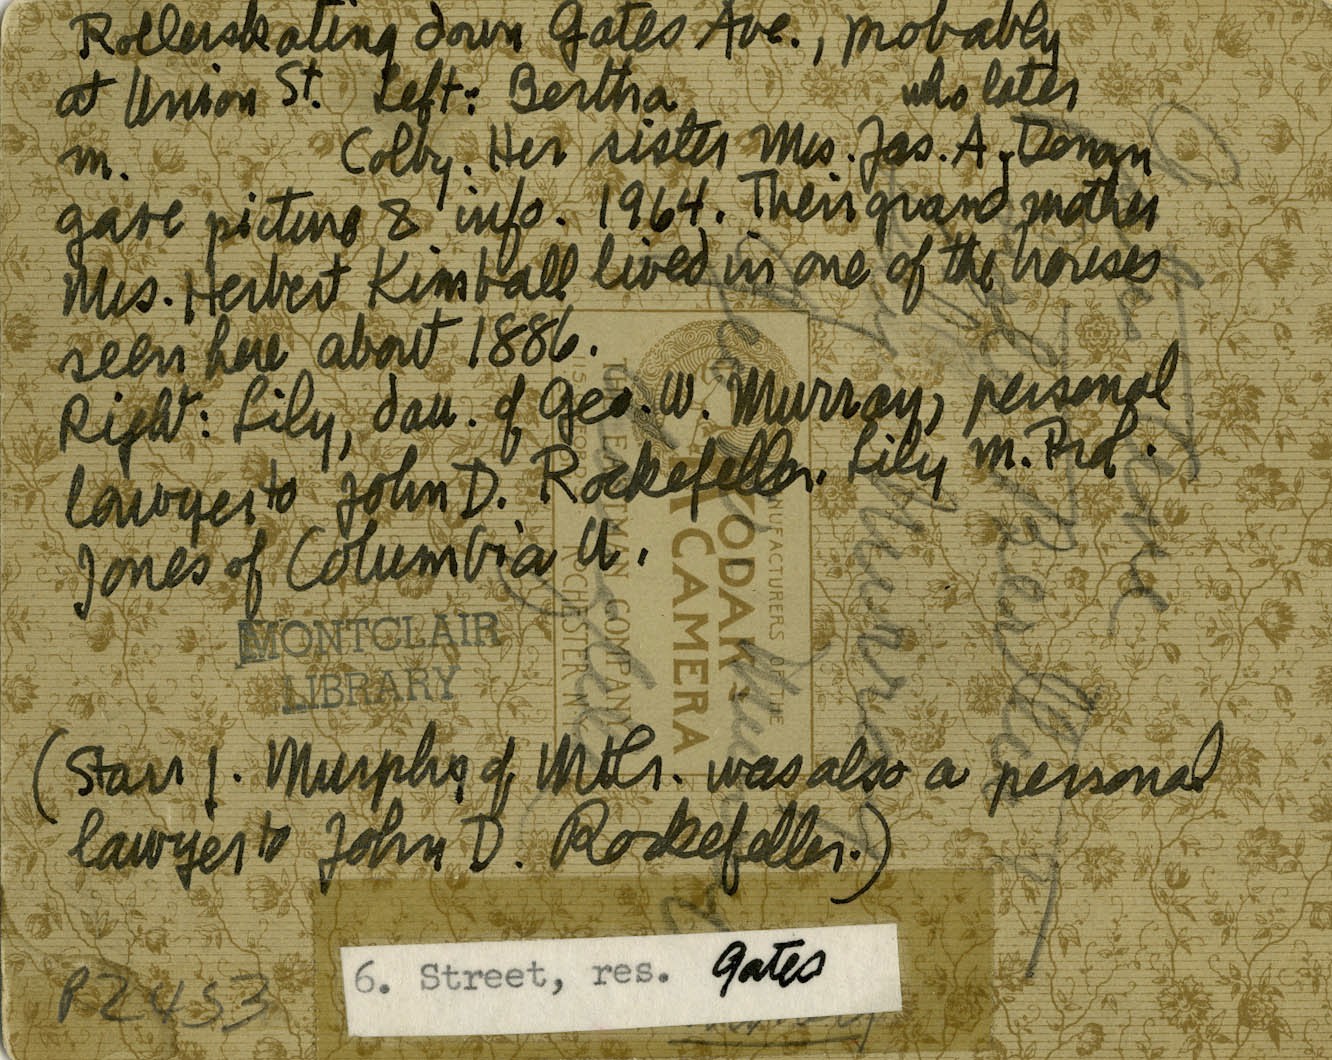 Rollerskating down Gates Ave., probably
at Union St. Left: Bertha who later
m. Colby. Her sister Mrs. Jas. A.
gave picture & info. 1964. Their grandmother
Mrs. Herbert Kimball lived in one of the houses
seen here about 1886.
Right: Lily, dau. of Geo. W. Murray, personal
lawyer to John D. Rockefeller. Lily m. Prof.
Jones of Columbia U.
MONTCLAIR
LIBRARY
KODAK
CAMERA
MANUFACTURERS OF THE
(Starr J. Murphy of Mtclr. was also a personal
lawyer to John D. Rockefeller.)
6. Street, res. Gates
P2453